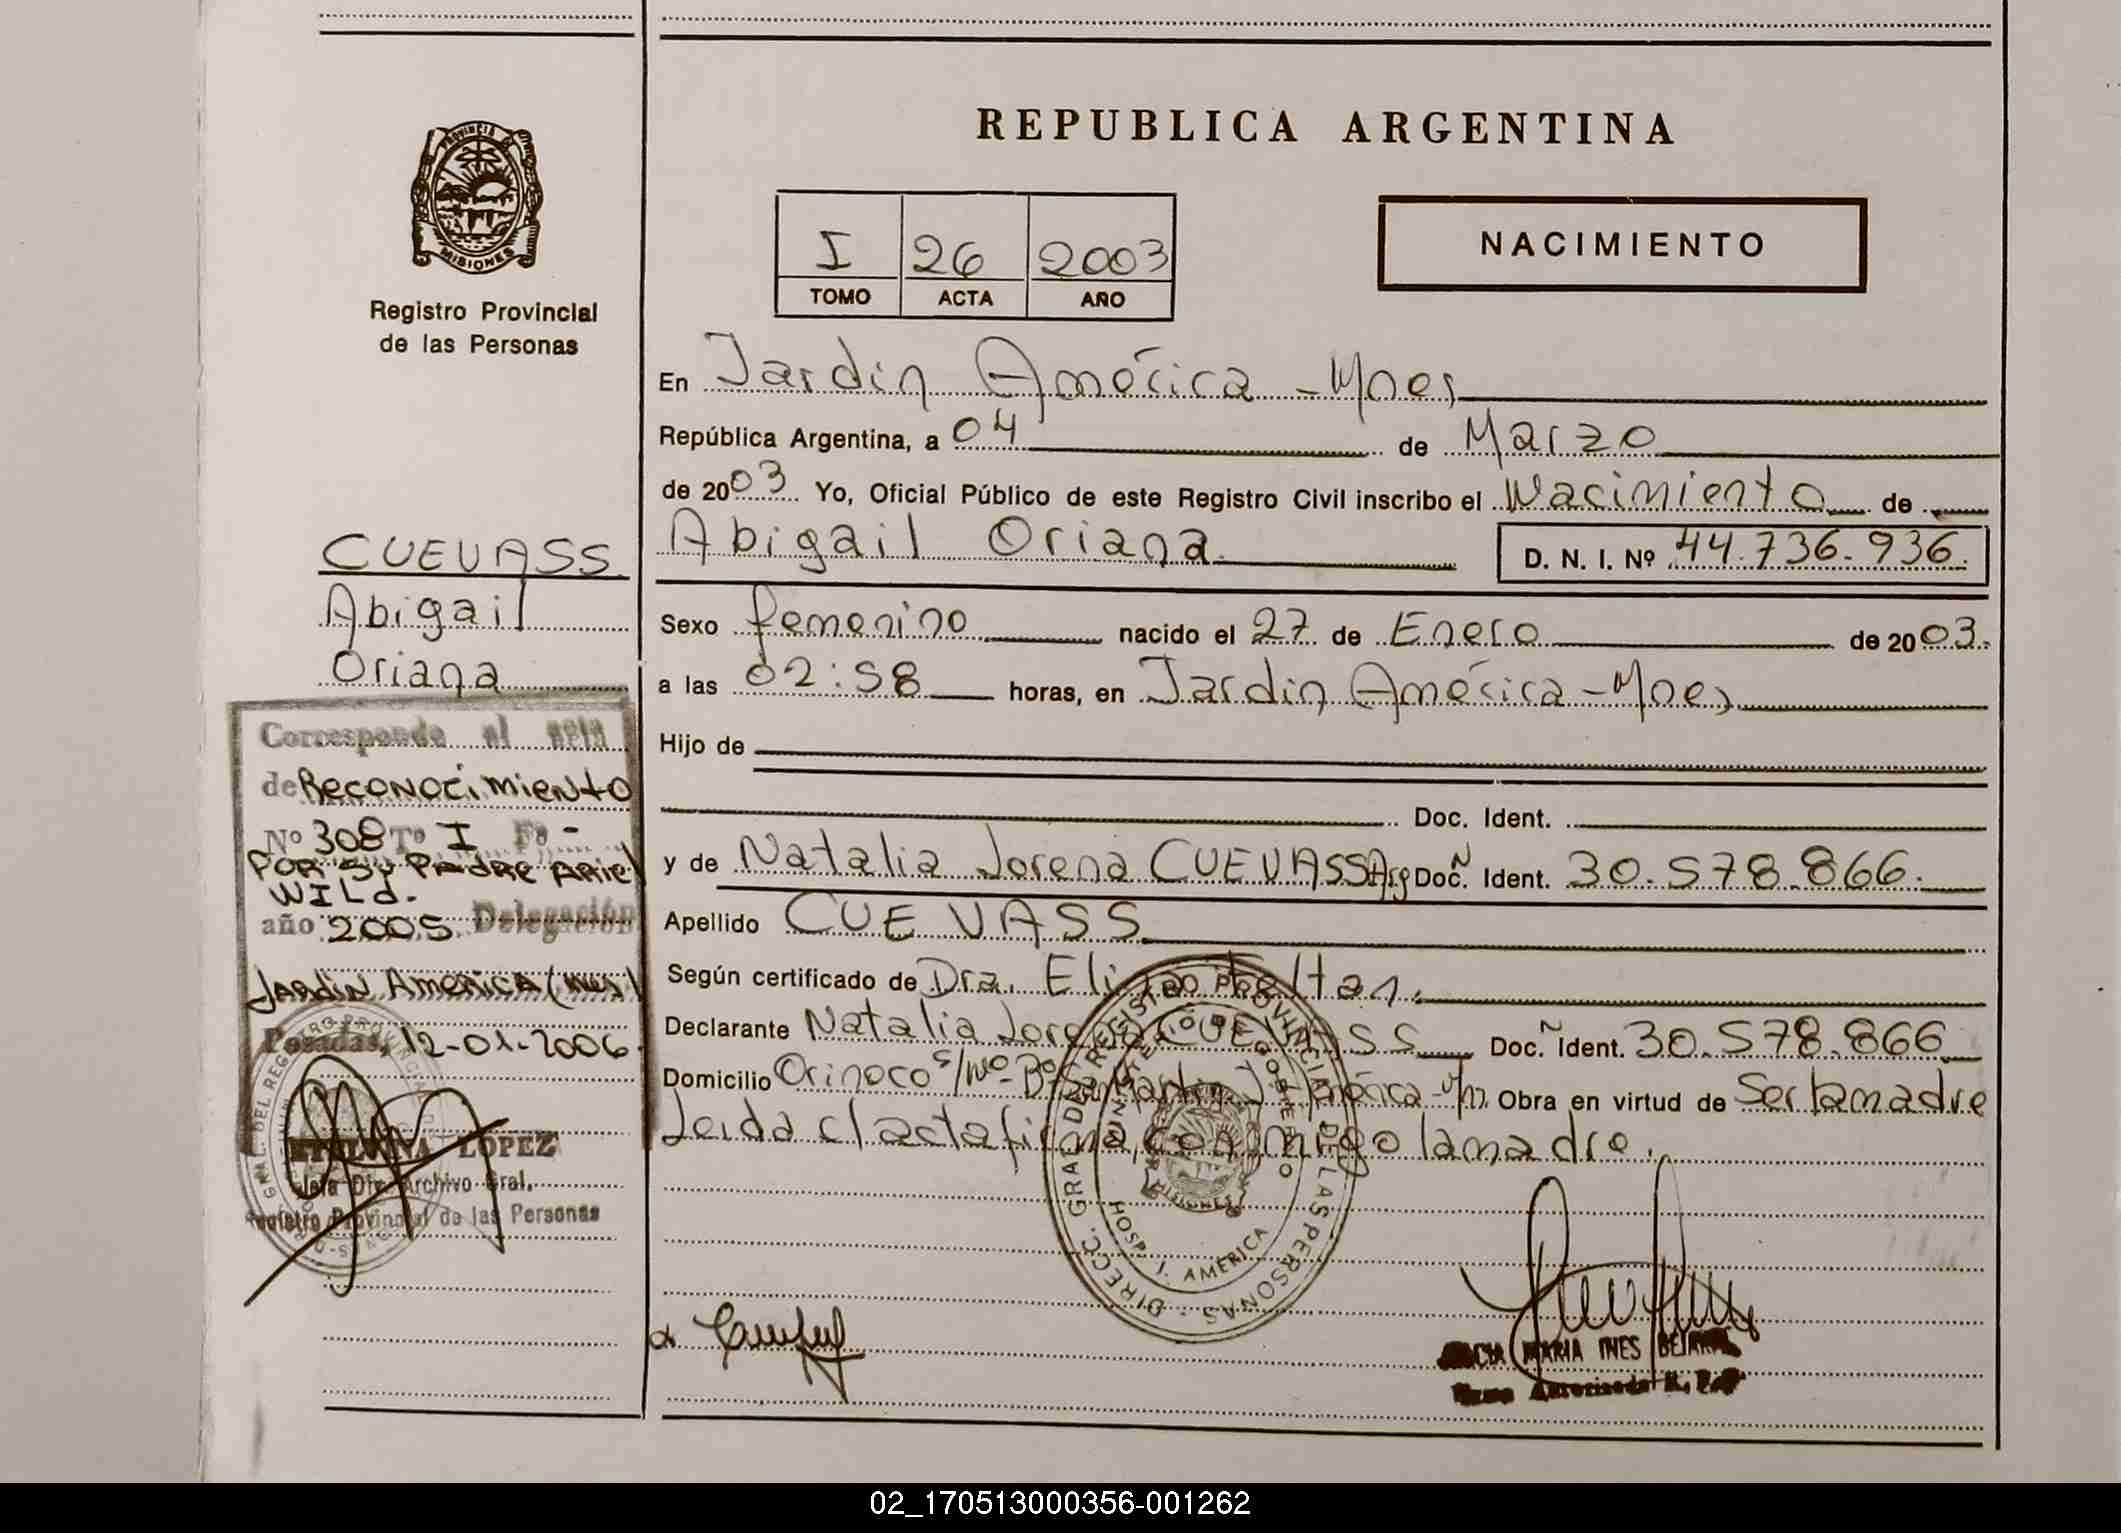 PROVINCIA
MISIONES
Registro Provincial
de las Personas
CUEVASS
Abigail
Oriana
Corresponde al acta
de Reconocimiento
Nº 308 Tº I Fº -
POR SU PADRE ARIEL
WILd.
año 2005 Delegación
JARDIN AMERICA (Mnes)
Posadas, 12-01-2006
LOPEZ
Jefa Div. Archivo Gral.
Registro Provincial de las Personas
REPUBLICA ARGENTINA
I 26 2003
TOMO ACTA AÑO
NACIMIENTO
En Jardín América - Mnes
República Argentina, a 04 de Marzo
de 2003 Yo, Oficial Público de este Registro Civil inscribo el Nacimiento de
Abigail Oriana D. N. I. Nº 44.736.936.
Sexo femenino nacido el 27 de Enero de 2003.
a las 02:58 horas, en Jardín América - Mnes
Hijo de
Doc. Ident.
y de Natalia Lorena CUEVASS Arg Doc. Ident. 30.578.866.
Apellido CUEVASS
Según certificado de Dra.
Declarante Natalia Lorena CUEVASS Doc. Ident. 30.578.866
Domicilio Orinoco s/Nº - Bº San Martín J. América - Obra en virtud de Ser la madre
Leída el acta firma conmigo la madre.
DIRECC. GRAL. DEL REGISTRO PROVINCIAL DE LAS PERSONAS
MINISTERIO DE GOBIERNO
HOSP. J. AMERICA
MISIONES
MARIA INES
02_170513000356-001262